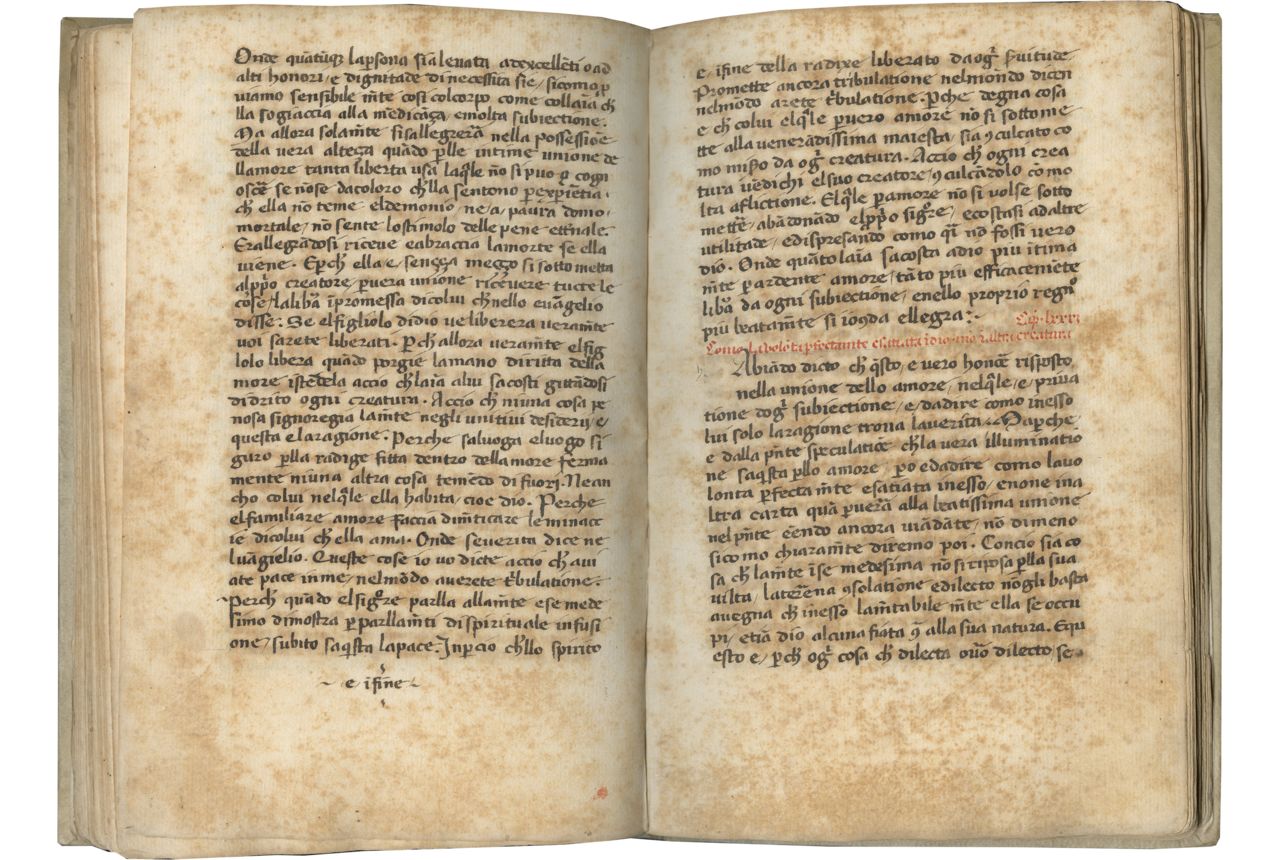 Onde quātūqȝ laꝑsona sīalevata adexcellēti o ad
alti honori, e dignitade di necessita sie, sicomo ꝓ
viamo sensibile mēte cosi colcorpo come collaīa cħ
lla sogiaccia alla medicāça, emolta subiectione.
Ma allora solam̄te si sallegrerā nella possessiōe
della vera alteça quādo ꝑlle intime unione de
llamore tanta liberta usā laq̄le nō si puo ꝓ cogn
oscē se nōse dacoloro cħlla sentono ꝑexꝑiētia.
cħ ella nō teme eldemonio, ne, a, paura domo,
mortale, nō sente lostimolo delle pene et̄nale.
Erallegrādosi riceve eabraccia lamorte se ella
viene. Eꝑcħ ella e, sença meçço si sotto metta
alꝓpo creatore, ꝑvera unione ricevere tucte le
cose, laliƀa īpromessa dicolui cħnello evāgelio
disse: Se elfigliolo didio ve liberera veram̄te
voi sarete liberati. ꝑcħ allora veram̄te elfig
lolo libera quādo porgie lamano diritta della
more istēdēla accio cħlaīa alui sacosti gittādosi
didrito ogni creatura. Accio cħ niuna cosa pe
nosa signoregia lam̄te negli unitivi desiderij, e,
questa elaragione. Perche saluoga eluogo si
guro ꝑlla radige fitta dentro dellamore ferma
mente niuna altra cosa temēdo di fuori. Ne an
cho colui nelq̄le ella habita, cioe dio. Perche
elfamiliare amore faccia dim̄ticare leminacc
ie dicolui cħ ella ama. Onde severita dice ne
luāgielio. Queste cose io vo dicte accio cħ avi
ate pace inme, nelmōdo averete t̄bulatione.
Percħ quādo elsigr̄e parlla allam̄te ese mede
simo dimostra ꝑparllam̄ti dispirituale infusi
one, subito saq̄sta lapace. Inꝑcio cħllo spirito
e īfine
e, īfine della radixe liberato daogī s̄vitude
Promette ancora tribulatione nelmōdo dicen
nelmōdo arete t̄bulatione. Pche degna cosa
e cħ colui elq̄le ꝑvero amore nō si sottome
tte alla venerādissima maiesta, sia ꝯculcato co
mo mis̄o da ogī creatura. Accio cħ ogni crea
tura vēdichi elsuo creatore, ꝯculcādolo cō mo
lta aflictione. Elq̄le ꝑamore nō si volse sotto
mettē, abādonādo elꝓpo sigr̄e, ecostasi adaltre
utilitade, edispresando como q̄l nō fossi vero
dio. Onde quātolaīa sacosta adio piu ītima
m̄te ꝑardente amore, tāto piu efficacem̄te
liƀa da ogni subiectione, enello proprio regnō
piu beatam̄te si ioꝯda ellegra:.
Cap. lxxxi
Como lavolōta ꝑfectam̄te esatiata ī dio, nō ī altra creatura
Abiādo dicto cħ q̄sto, e vero honōe risposto
nella unione dello amore, nelq̄le, e, priva
tione dogī subiectione, e, dadire como inesso
lui solo laragione trova laverita. Maꝑche
e dalla p̄nte speculatiōe cħla vera illuminatio
ne saq̄sta ꝑllo amore, ꝑo edadire como lavo
lonta ꝑfectam̄te esatiata inesso, enone ina
ltra carta quā ꝑverā alla beatissima unione
nel p̄nte eēndo ancora viādāte, nō di meno
sicomo chiaram̄te diremo poi. Concio sia co
sa cħ lam̄te īse medesima nō si riposa ꝑlla sua
vilta, laterēna ꝯsolatione edilecto nōgli basta
avegna cħ inesso lam̄tabile m̄te ella se occu
pi, etiā dio alcuna fiata ꝯ alla sua natura. Equ
esto e, ꝑcħ ogī cosa cħ dilecta ovō dilecto, se